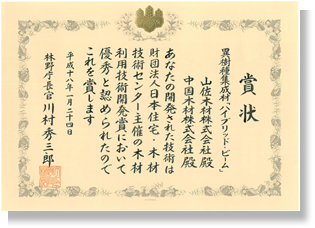 賞状
異樹種集成材「ハイブリッド・ビーム」
山佐木材株式会社殿
中国木材株式会社殿
あなたの開発された技術は
財団法人日本住宅・木材
技術センター主催の木材
利用技術開発賞において
優秀と認められたので
これを賞します
平成十八年一月二十四日
林野庁長官 川村秀三郎